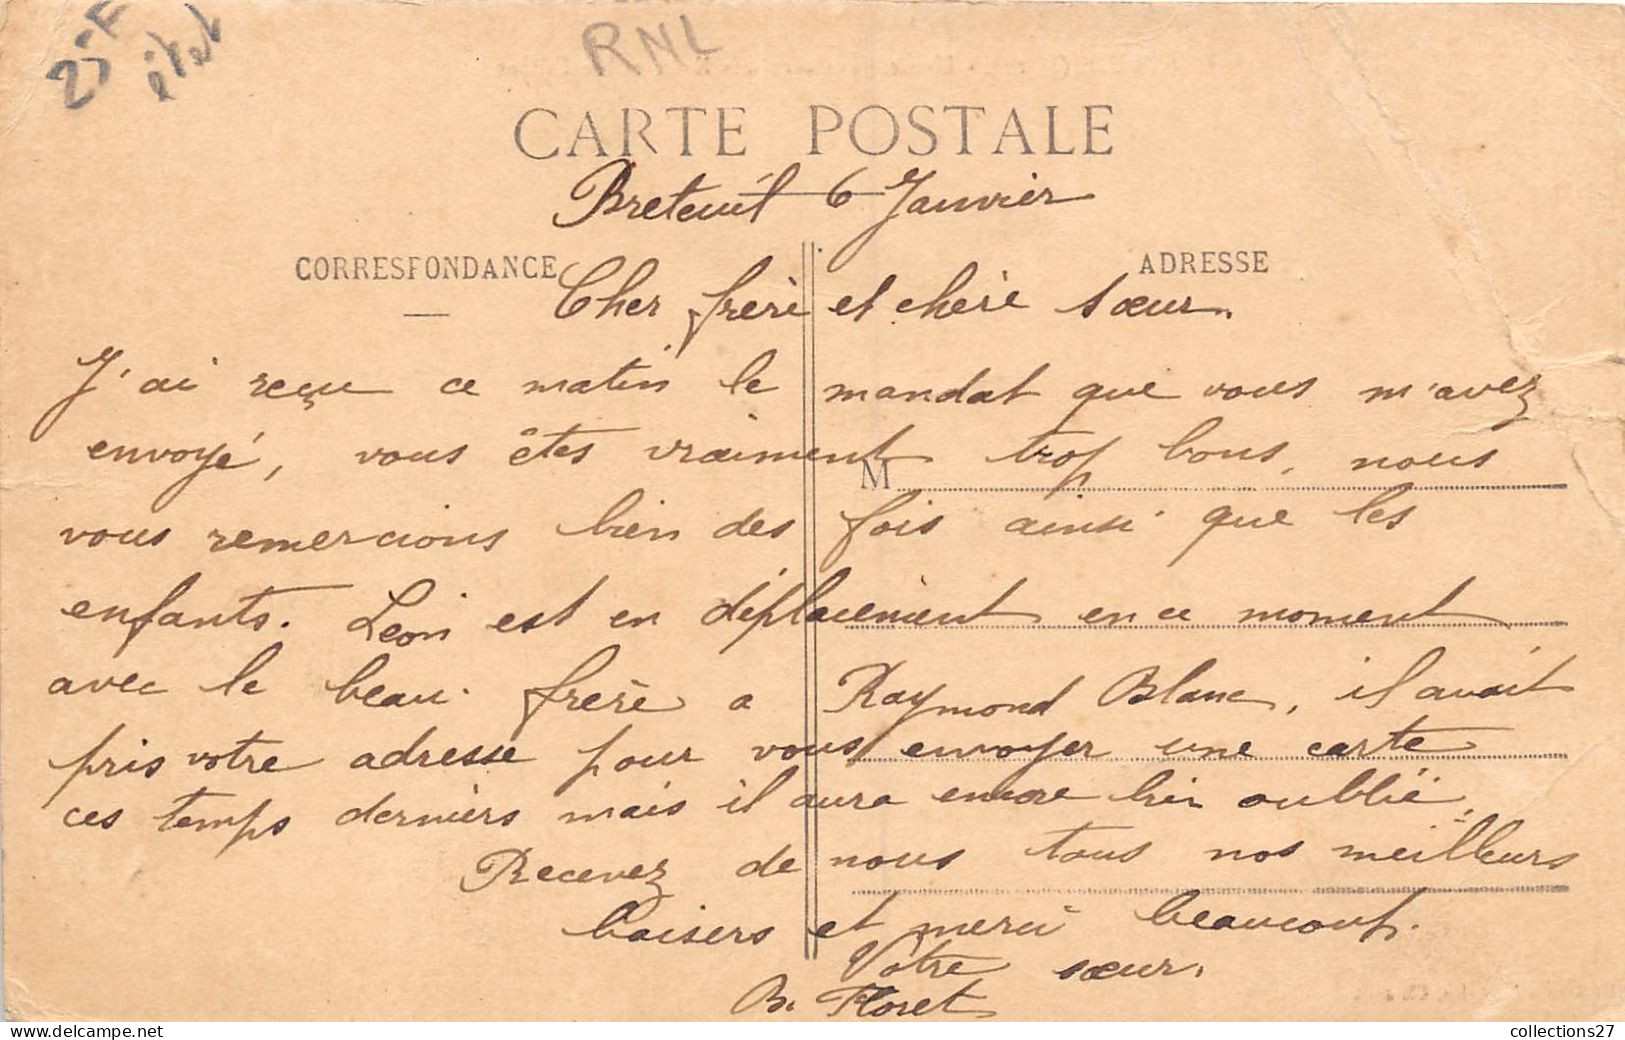 25F
état
RNL
CARTE POSTALE
Breteuil 6 Janvier
CORRESPONDANCE
ADRESSE
Cher frère et chère sœur.
J'ai reçu ce matin le mandat que vous m'avez
envoyé, vous êtes vraiment trop bons, nous
M
vous remercions bien des fois ainsi que les
enfants. Léon est en déplacement en ce moment
avec le beau frère a Raymond Blanc, il avait
pris votre adresse pour vous envoyer une carte
ces temps derniers mais il aura encore bien oublié,
Recevez de nous tous nos meilleurs
baisers et merci beaucoup.
Votre sœur.
B. Floret
collections27